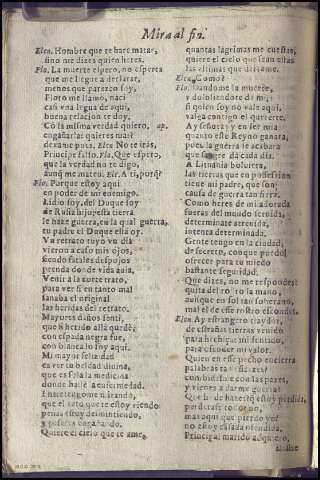 Mira al fin.
Elen. Hombre que te harè matar,
sino me dizes quien heres.
Flo. La muerte espero, no esperes
que me llegue a declarar,
menos que parezco soy,
Floro me llamo, naci
casi vna legua de aqui,
buena relacion te doy.
Cō la misma verdad quiero, ap.
engañarla: quieres mas?
dexame pues. Elen No te iràs,
Principe falso. Flo. Que espero,
que la verdad no te digo,
aunq̃ me maten. Ele. A ti, porq̃?
Flo. Porque estoy aqui
en poder de mi enemigo.
Lidio soy, del Duque soy
de Rusia hijo, y esta tierra
le haze guerra, en la qual guerra,
tu padre el Duque està oy.
Vn retrato tuyo vn dia
vieron acaso mis ojos,
siendo fatales despojos
prenda donde vida auia.
Venir à la corte trato,
para ver si en tanto mal
sanaba el original
las heridas del retrato.
Mayores daños sentì,
que si herido allà quedè,
con espada negra fue,
con blanca lo soy aqui.
Mi mayor felizidad
es ver tu beldad diuina,
que es sola la medicina
donde hallè la enfermedad.
Entretengome mirando,
que el rato que te estoy viendo
penas estoy desmintiendo,
y pesares engañando.
Quiere el cielo que te ame,
quantas lagrimas me cuestan,
quiere el cielo que sean estas
las vltimas que derrame.
Elen. Como?
Flo. Dandome la muerte,
y doliendote de mi;
si quien soy no vale aqui,
valga contigo el quererte.
Ay señora! y en ser mia
quanto este Reyno ganara,
pues la guerra se acabara
que sangre dà cada dia.
A Lituania boluiera,
las tierras que en possession
tiene mi padre, que son
causa de guerra tan fiera.
Como heres de mi adorada
fueras del mundo temida,
determinate atreuida,
intenta determinada.
Gente tengo en la ciudad,
de secreto, con que puedo
ofrecer para tu miedo
bastante seguridad.
Que dizes, no me respondes?
quita del rostro la mano,
aunque en sol tan soberano,
mal el de esse rostro escondes.
Elen. Ay estrangero traydor,
de estrañas tierras venido
para hechizar mi sentido,
para ofender mi valor.
Quien en esse pecho encierra
palabras tan
combidasme con las pazes,
y vienes a darme guerra?
Que he de hazer, q̃ estoy perdida,
perderase todo, no,
mas aqui que pierdo yo?
no estaua ya
Principal marido adquiero,